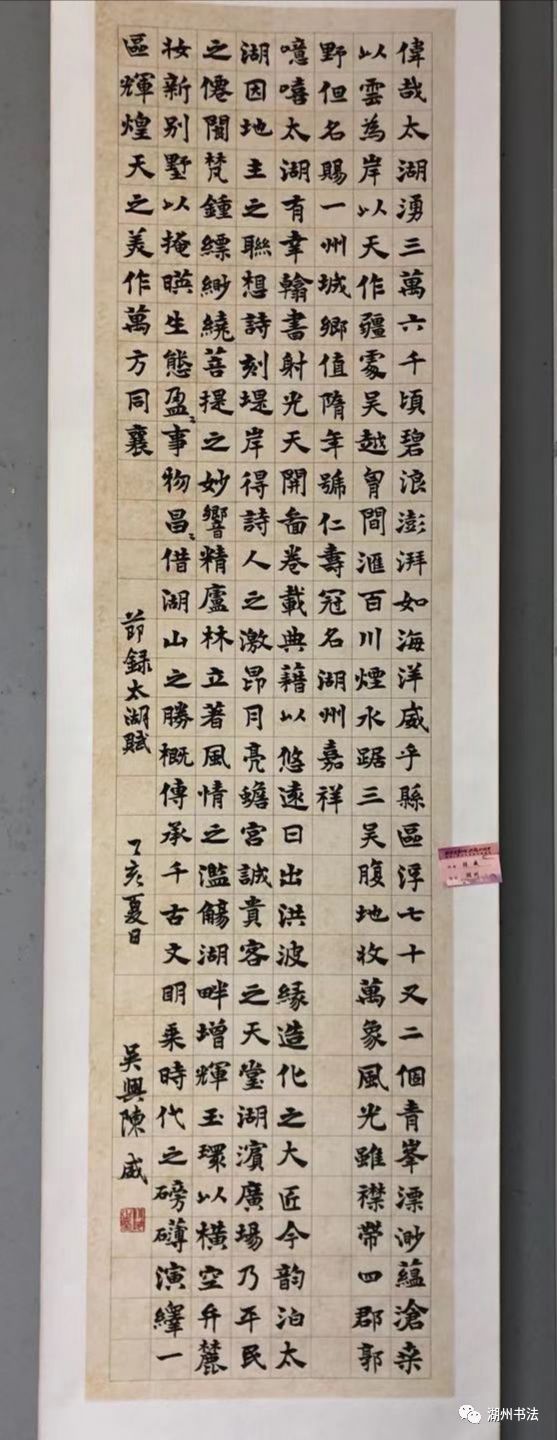 偉哉太湖湧三萬六千頃碧浪澎湃如海洋威乎縣區浮七十又二個青峯漂渺蘊滄桒
以雲為岸以天作疆處吴越胷間滙百川煙水踞三吴腹地收萬象風光雖襟帶四郡郭
野但名賜一州城鄉值隋年號仁壽冠名湖州嘉祥
噫嘻太湖有幸翰書射光天開畵卷載典藉以悠遠日出洪波緣造化之大匠今韵泊太
湖因地主之聯想詩刻堤岸得詩人之激昂月亮蟾宫誠貴客之天堂湖濱廣場乃平民
之僊閣梵鍾縹緲繞菩提之妙響精廬林立著風情之濫觴湖畔增輝玉環以橫空弁麓
妝新别墅以掩暎生態盈〻事物昌〻借湖山之勝概傳承千古文明乗時代之磅礴演繹一
區輝煌天之美作萬方同襄
節録太湖賦
丁亥夏日
吴興陳威
湖州书法